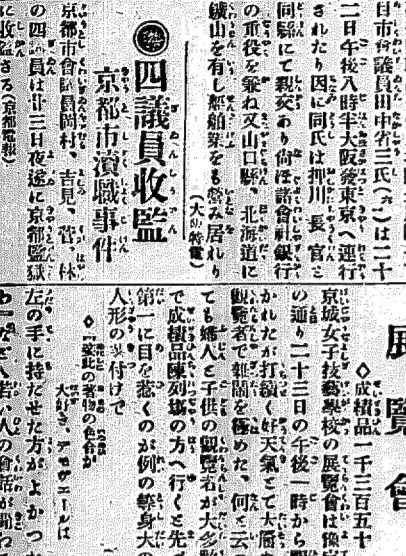 日市會議員田中省三氏(六二)は二十
二日午後八時半大阪發東京へ連行
されたり因に同氏は押川長官と
同縣にて親交あり尚ほ諸會社銀行
の重役を兼ね又山口縣、北海道に
鑛山を有し船舶業をも營み居れり
(大阪特電)
四議員收監
京都市瀆職事件
京都市會議員岡村、吉見、菅、林
の四議員は廿三日夜遂に京都監獄
に收監さる(京都電報)
展覽會
◇成績品一千三百五十
京城女子技藝學校の展覽會は豫定
の通り二十三日の午後一時から開
かれたが打續く好天氣とて大層な
觀覽者で雜鬧を極めた、何と云つ
ても婦人と子供の觀覽者が大多數
で成績品陳列場の方へ行くと先づ
第一に目を惹くのが例の等身大の
人形の着付けで
◇「妾此の着物の色合が
大好き、デモサ
左の手に持たせた方がよかつ
若い人の會話が聞